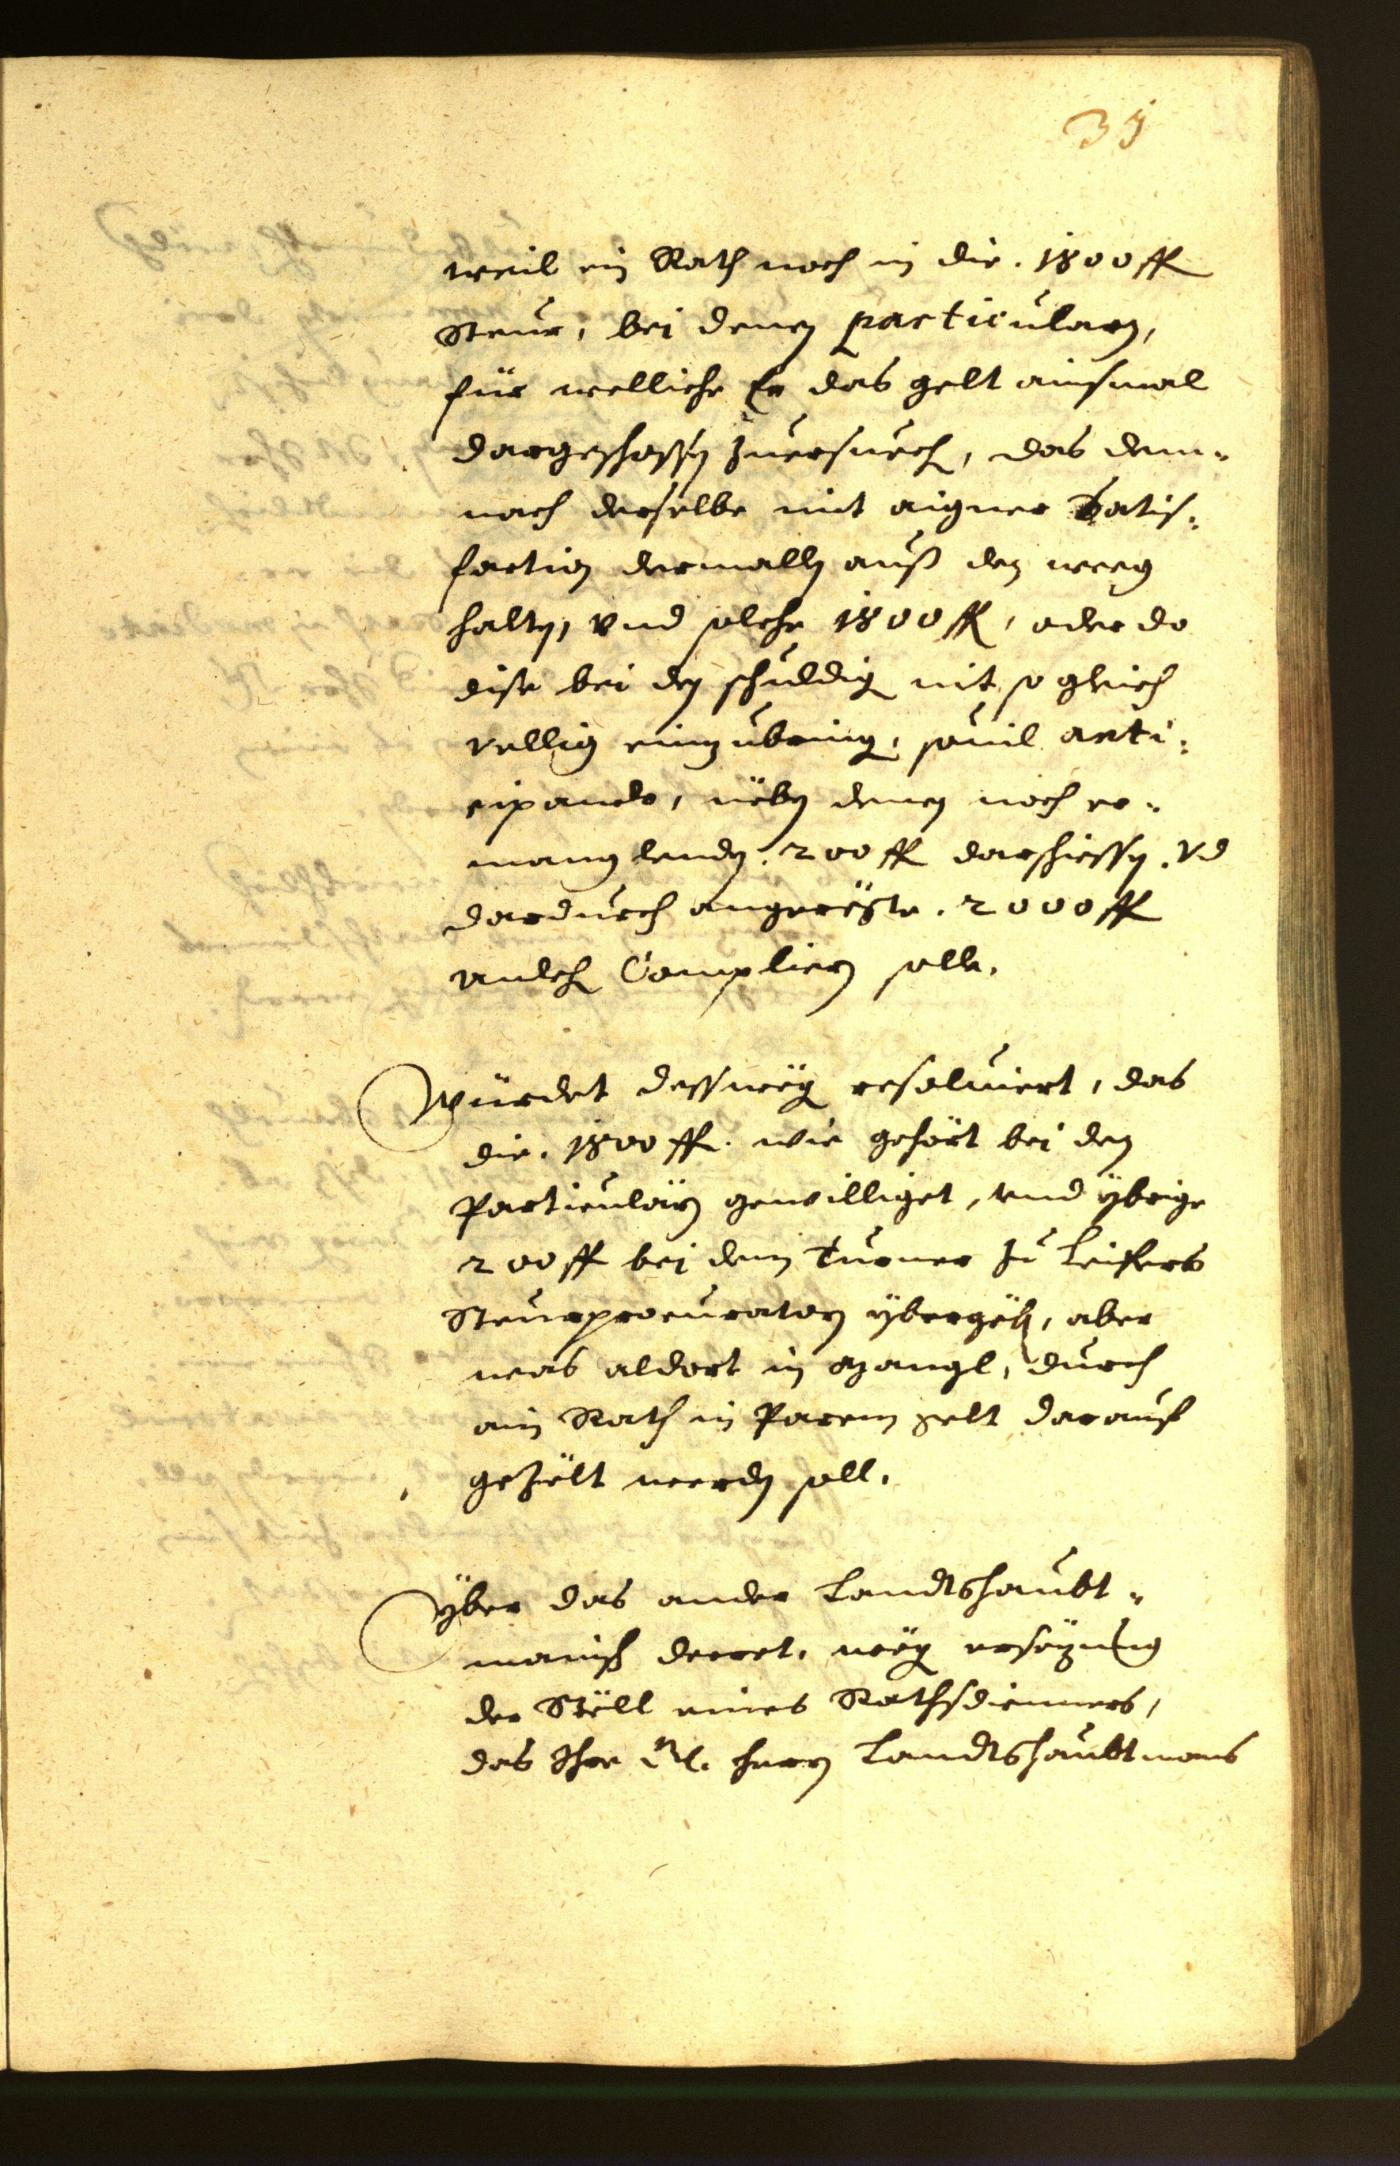 35
weil ein Rath noch in die. 1800 fl
Steur, bei denen particularn,
für welliche Er das gelt ainsmal
dargeschossen zuersuech, das dem-
nach derselbe mit aigner Satis-
faction dermalln auß den weeg
halten, vnd solche 1800 fl, oder do
dise bei den schuldig nit so gleich
vellig einzubring, souil anti-
cipando, nëben denen noch er-
manglenden. 200 fl darschiessen. Vd
dardurch angerëgte. 2000 fl
Compliern solle.
Würdet dessweg resoluiert, das
die. 1800 fl. wie gehört bei den
Particularn gewilliget, vnd ÿbrige
200 fl bei dem Turner zu Leifers
Steurprocuratorn ÿbergëb, aber
was aldort in mangl, durch
ain Rath in Parem gelt darauf
gezëlt werden soll.
ÿber das ander Landtshaubt-
manisch decret, wëg ersezung
der Stëll eines Rathsdienners,
das Ihr Herrn Landtshaubtmans